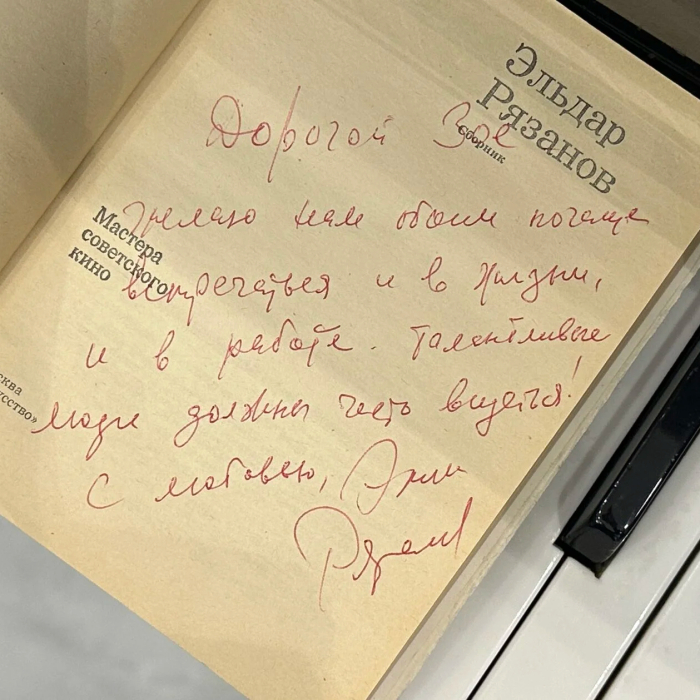 Эльдар
Рязанов
Сборник
Дорогой Зое
желаю нам обоим почаще
встречаться и в жизни,
и в работе. Талантливые
люди должны часто видеться!
С любовью, Эльдар
Рязанов
Мастера
советского
кино
сква
усство»